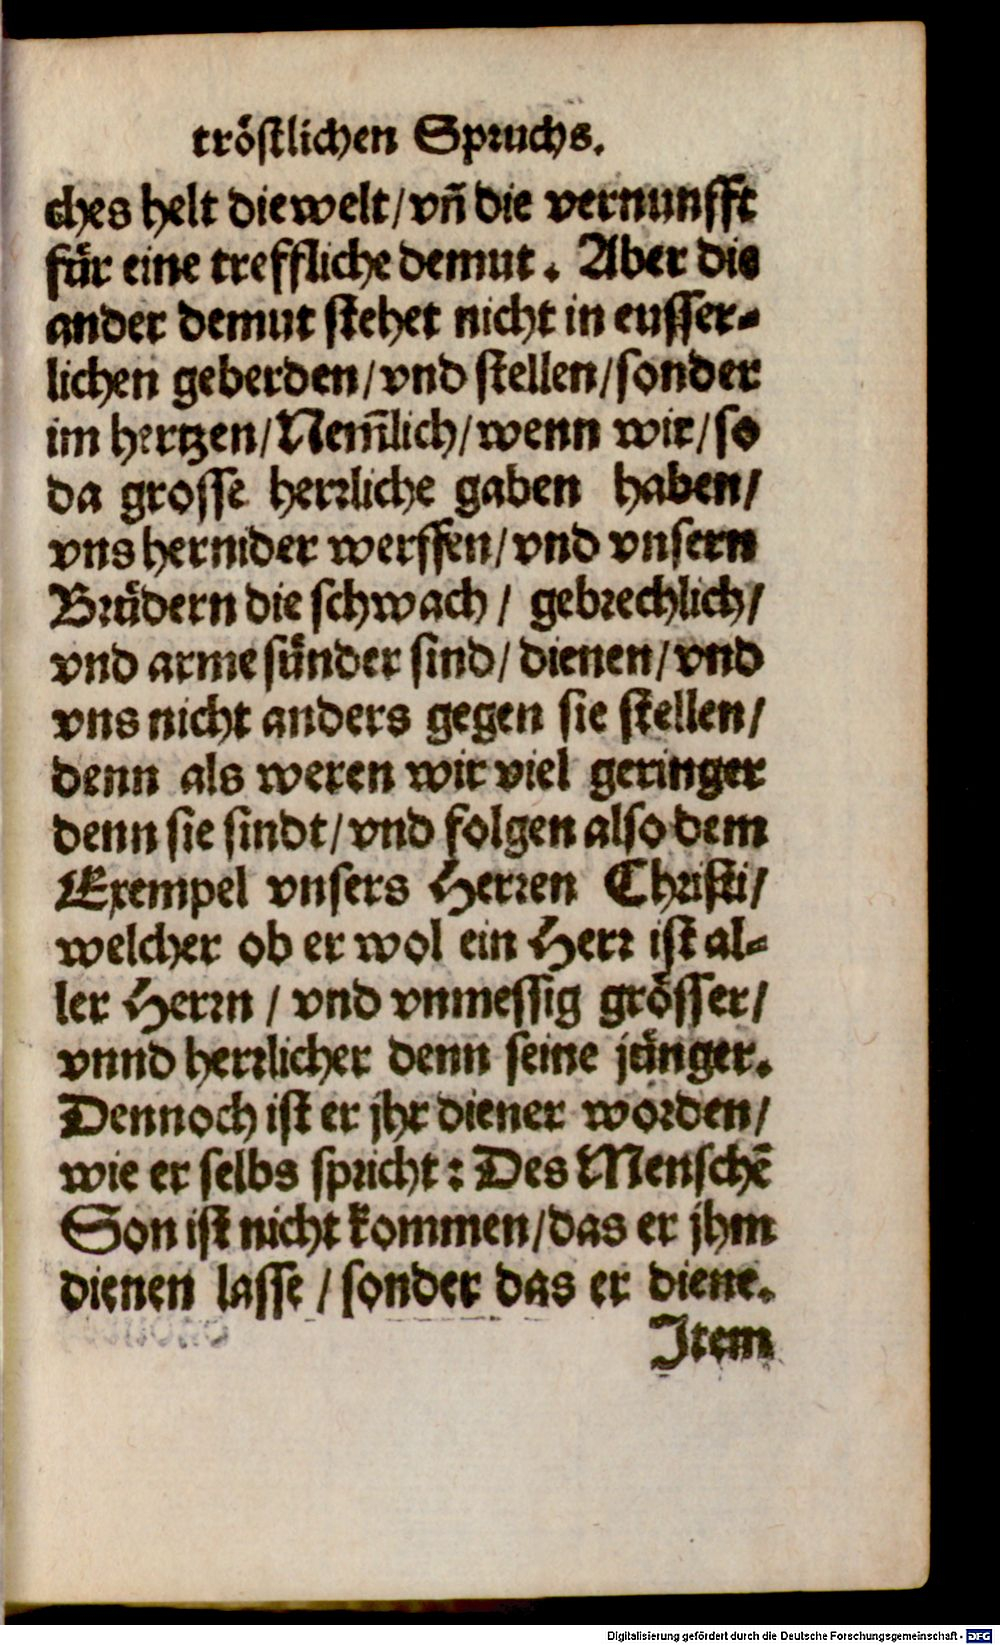 tröstlichen Spruchs.
ches helt die welt/ vñ die vernunfft
für eine treffliche demut. Aber dis
ander demut stehet nicht in eusser-
lichen geberden/ vnd stellen/ sonder
im hertzen/ Nem̃lich/ wenn wir/ so
da grosse herrliche gaben haben/
vns hernider werffen/ vnd vnsern
Brüdern die schwach/ gebrechlich/
vnd arme sünder sind/ dienen/ vnd
vns nicht anders gegen sie stellen/
denn als weren wir viel geringer
denn sie sindt/ vnd folgen also dem
Exempel vnsers Herren Christi/
welcher ob er wol ein Herr ist al-
ler Herrn/ vnd vnmessig grösser/
vnnd herrlicher denn seine jünger.
Dennoch ist er jhr diener worden/
wie er selbs spricht: Des Menschẽ
Son ist nicht kommen/ das er jhm
dienen lasse/ sonder das er diene.
Item
Digitalisierung gefördert durch die Deutsche Forschungsgemeinschaft - DFG